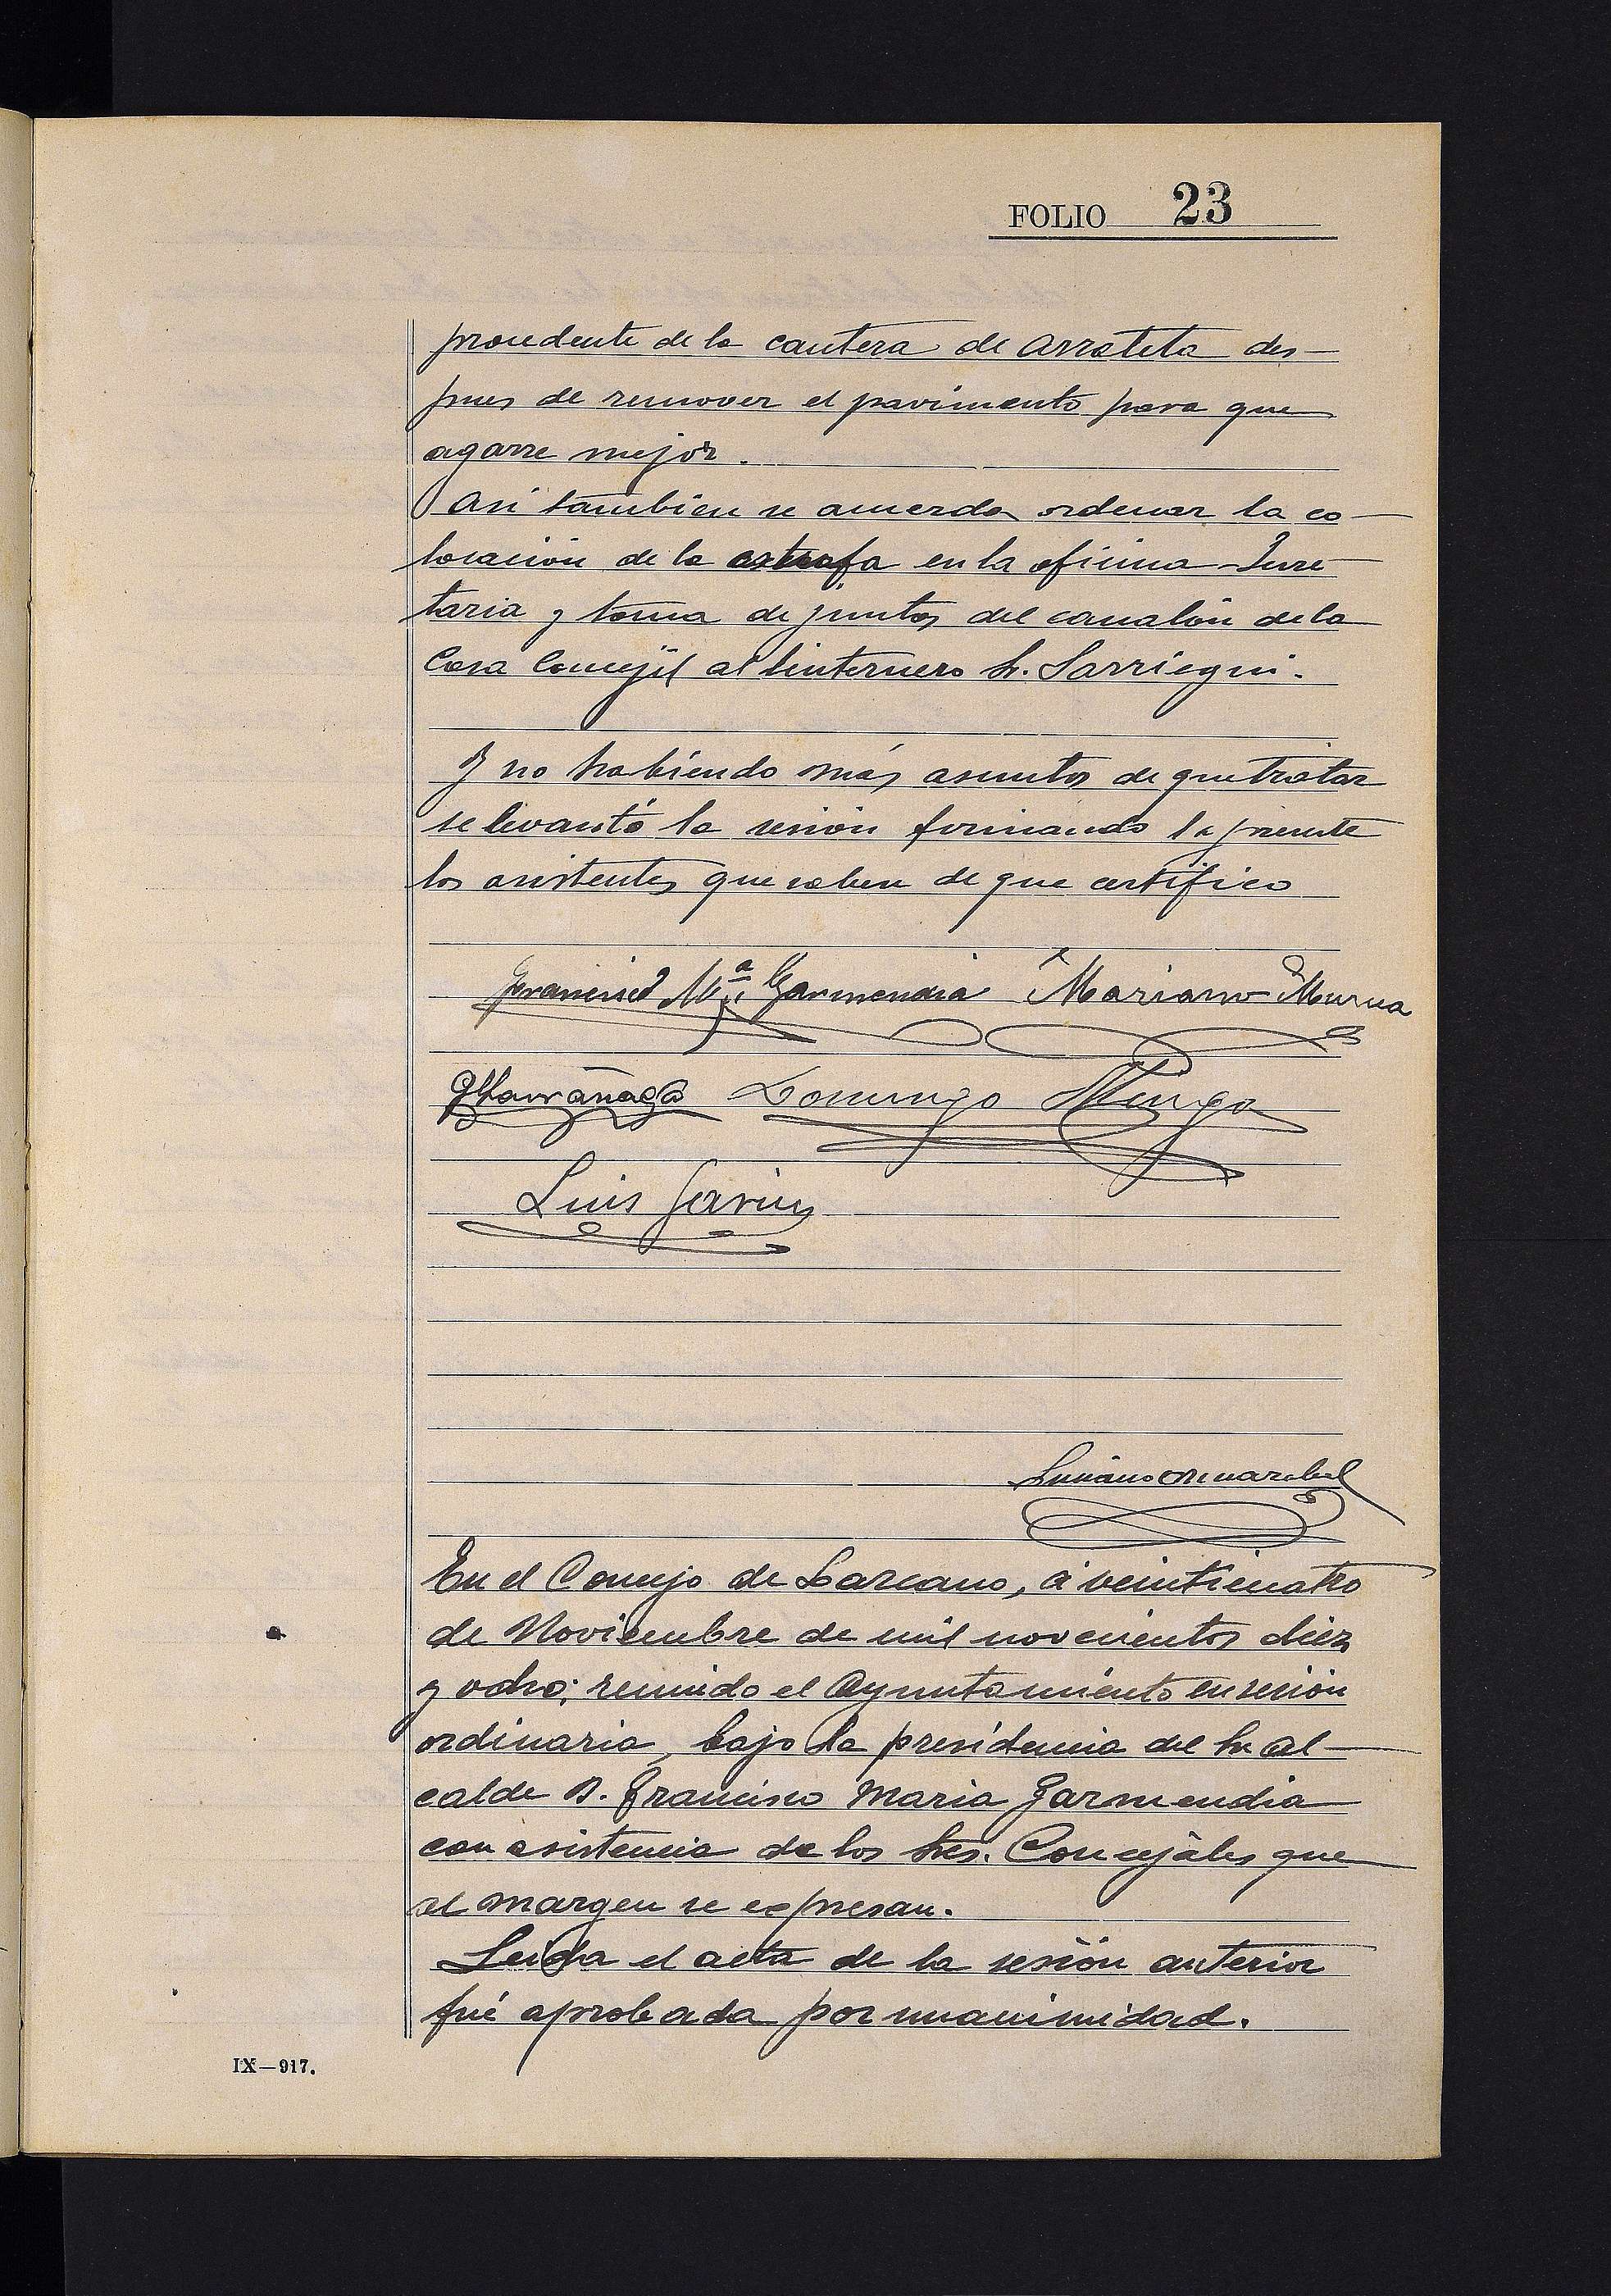 FOLIO 23
procedente de la cantera de Arrateta des-
pues de remover el pavimento para que
agarre mejor.
Asi tambien se acuerda ordenar la co-
locación de la estufa en la oficina Secre
taria y toma de juntas del canalón de la
Casa Concejil al linternero Sr. Sarriegui.
Y no habiendo más asuntos de que tratar
se levantó la sesión firmando la presente
los asistentes que saben de que certifico
Francisco Mª Garmendia Mariano Murua
Domingo
Luis
Luciano
En el Concejo de Lazcano, á veinticuatro
de Noviembre de mil novecientos diez
y ocho; reunido el Ayuntamiento en sesión
ordinaria, bajo la presidencia del Sr. Al-
calde D. Francisco Maria Garmendia
con asistencia de los Sres. Concejáles que
al margen se expresan.
Leida el acta de la sesión anterior
fué aprobada por unanimidad.
IX—917.